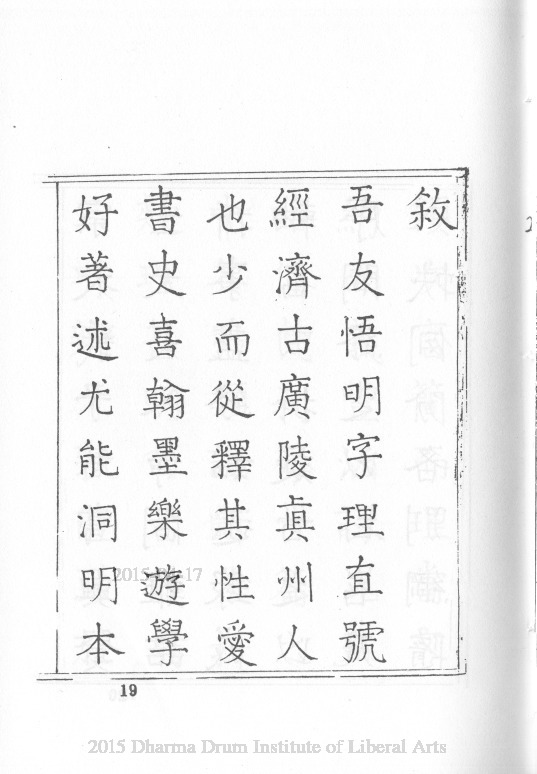 敘
吾友悟明字理直號
經濟古廣陵眞州人
也少而從釋其性愛
書史喜翰墨樂遊學
好著述尤能洞明本
19
2015 Dharma Drum Institute of Liberal Arts